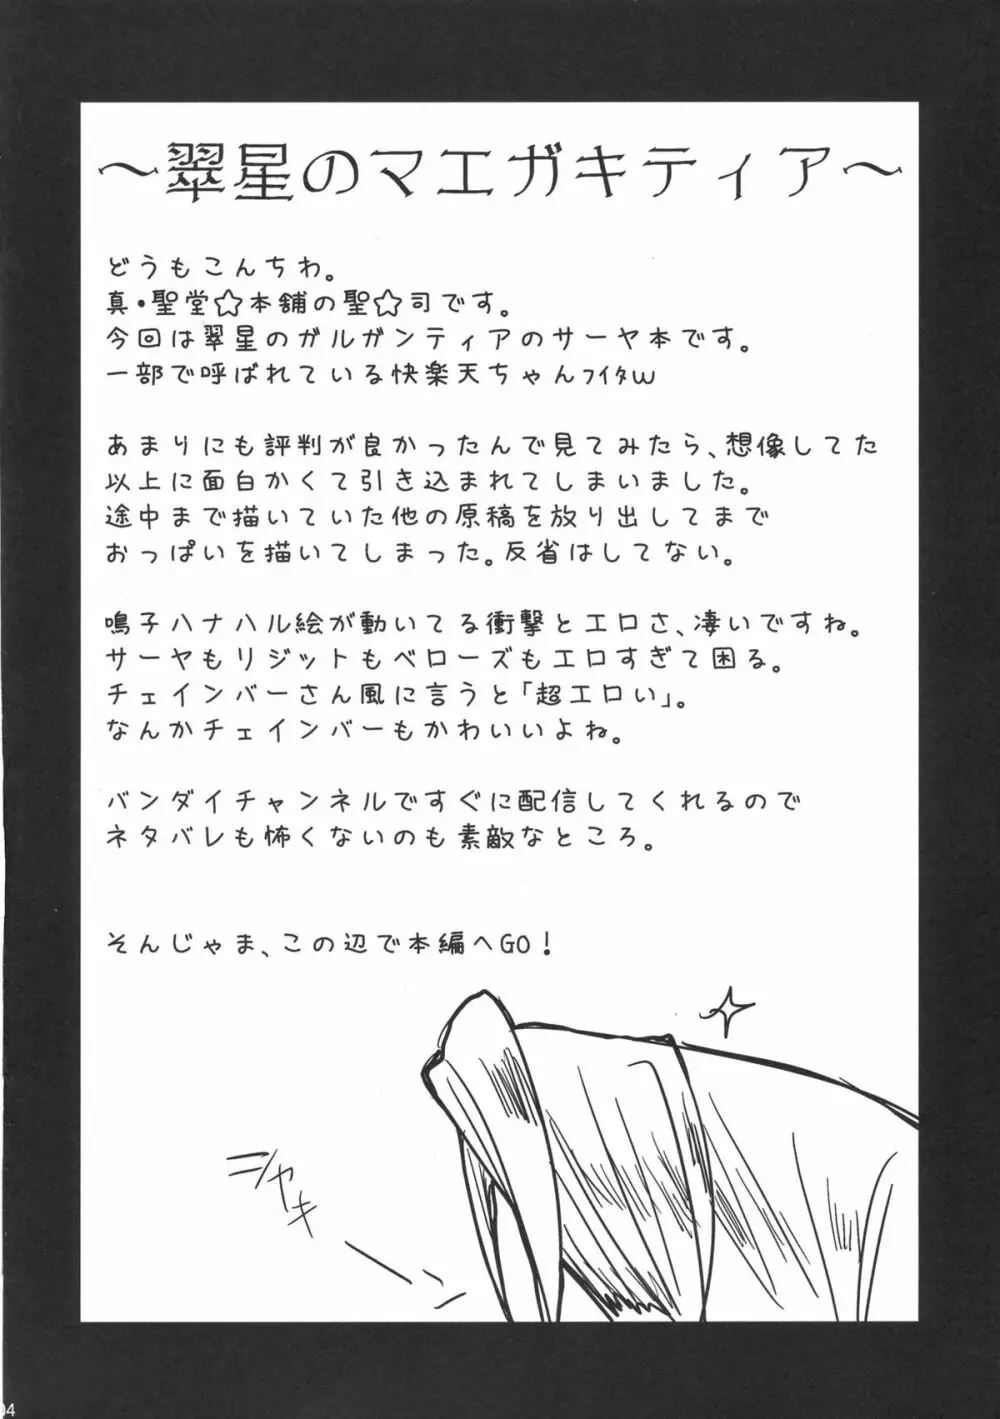 ～翠星のマエガキティア～
どうもこんちわ。
真・聖堂☆本舗の聖☆司です。
今回は翠星のガルガンティアのサーヤ本です。
一部で呼ばれている快楽天ちゃんﾌｲﾀw
あまりにも評判が良かったんで見てみたら、想像してた
以上に面白かくて引き込まれてしまいました。
途中まで描いていた他の原稿を放り出してまで
おっぱいを描いてしまった。反省はしてない。
鳴子ハナハル絵が動いてる衝撃とエロさ、凄いですね。
サーヤもリジットもベローズもエロすぎて困る。
チェインバーさん風に言うと「超エロい」。
なんかチェインバーもかわいいよね。
バンダイチャンネルですぐに配信してくれるので
ネタバレも怖くないのも素敵なところ。
そんじゃま、この辺で本編へGO！
ニシャキーン
04